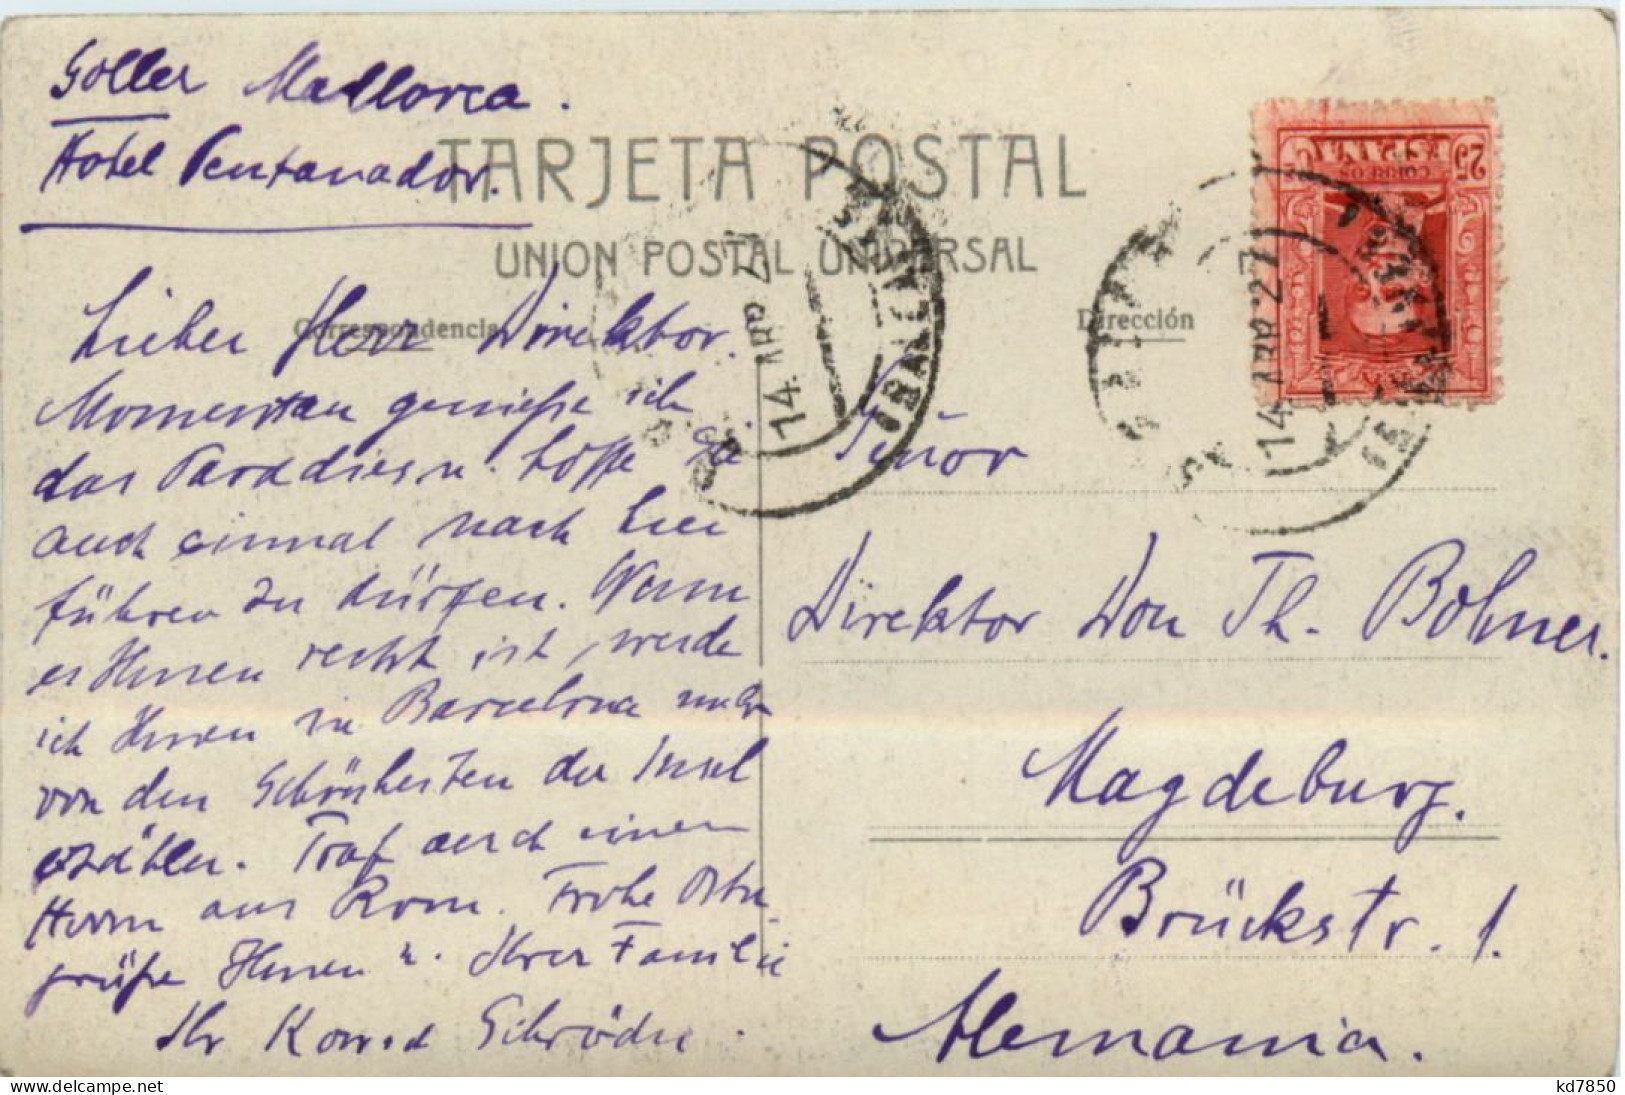 Soller Mallorca.
Hotel Pentanador.
TARJETA POSTAL
UNION POSTAL UNIVERSAL
Correspondencia
Dirección
Lieber Herr Direktor.
Momentan genieße ich
das Paradies u. hoffe Sie
auch einmal nach hier
führen zu dürfen. Wenn
es Ihnen recht ist, werde
ich Ihnen in Barcelona mehr
von den Schönheiten der Insel
erzählen. Traf auch einen
Herrn aus Rom. Frohe Oster-
grüße Ihnen u. Ihrer Familie
Ihr Konrad Schröder.
Señor
Direktor Don Th. Bohner.
Magdeburg.
Brückstr. 1.
Alemania.
CORREOS
25
14 ABR 27
14 ABR 27
www.delcampe.net
kd7850